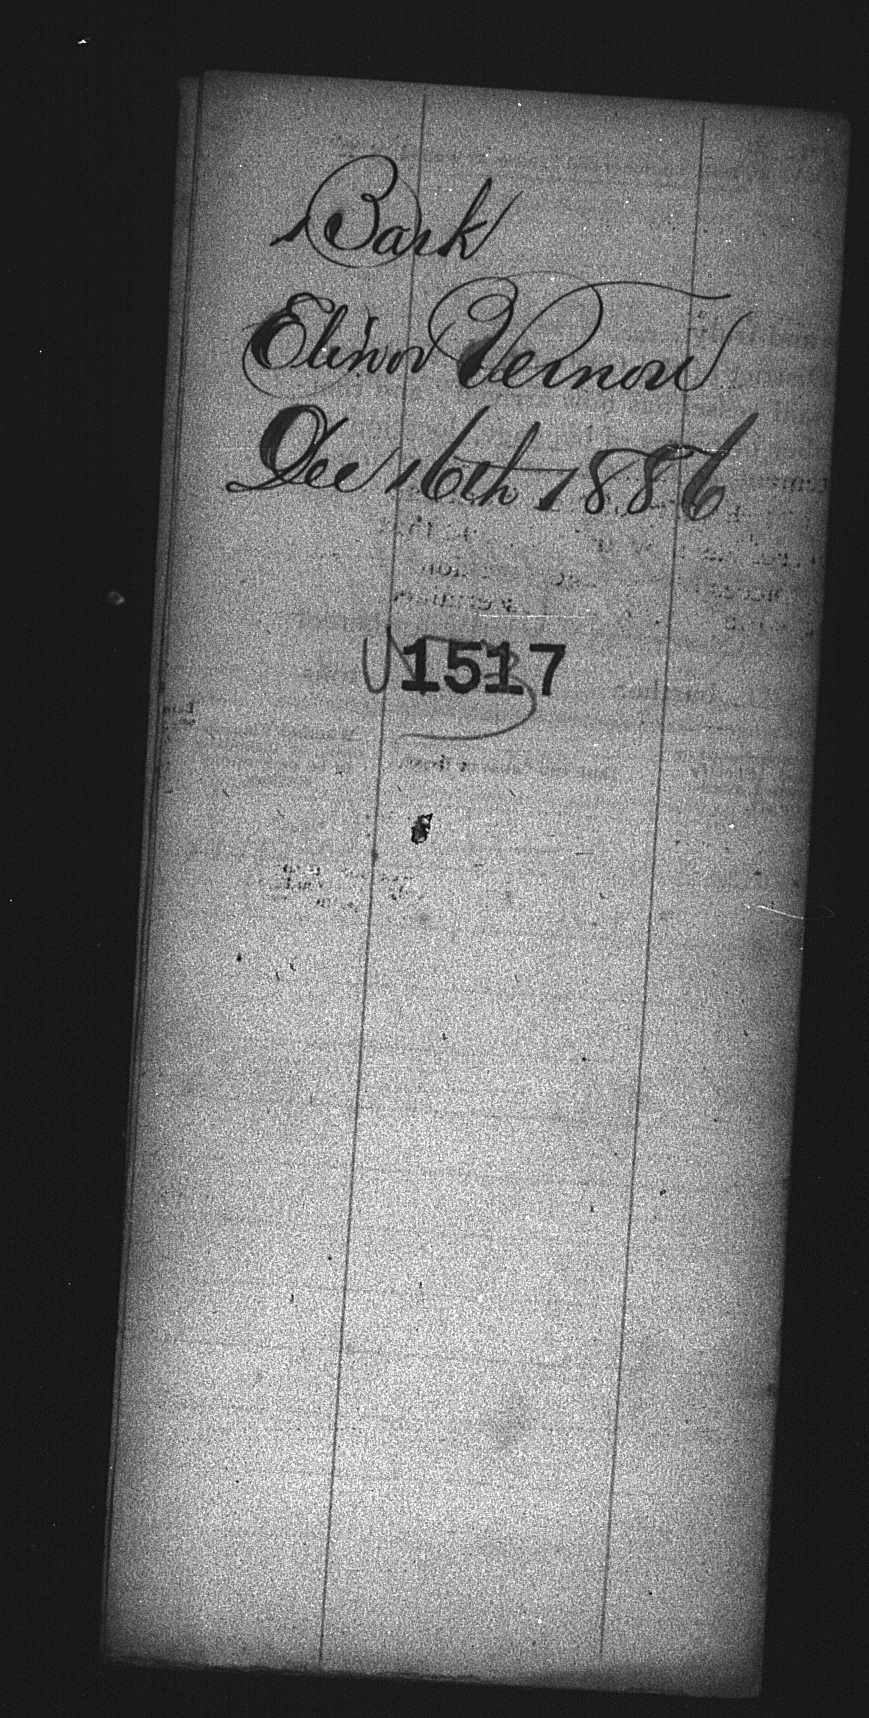 Bark
Elinor Vernon
Dec 16th 1886
1517